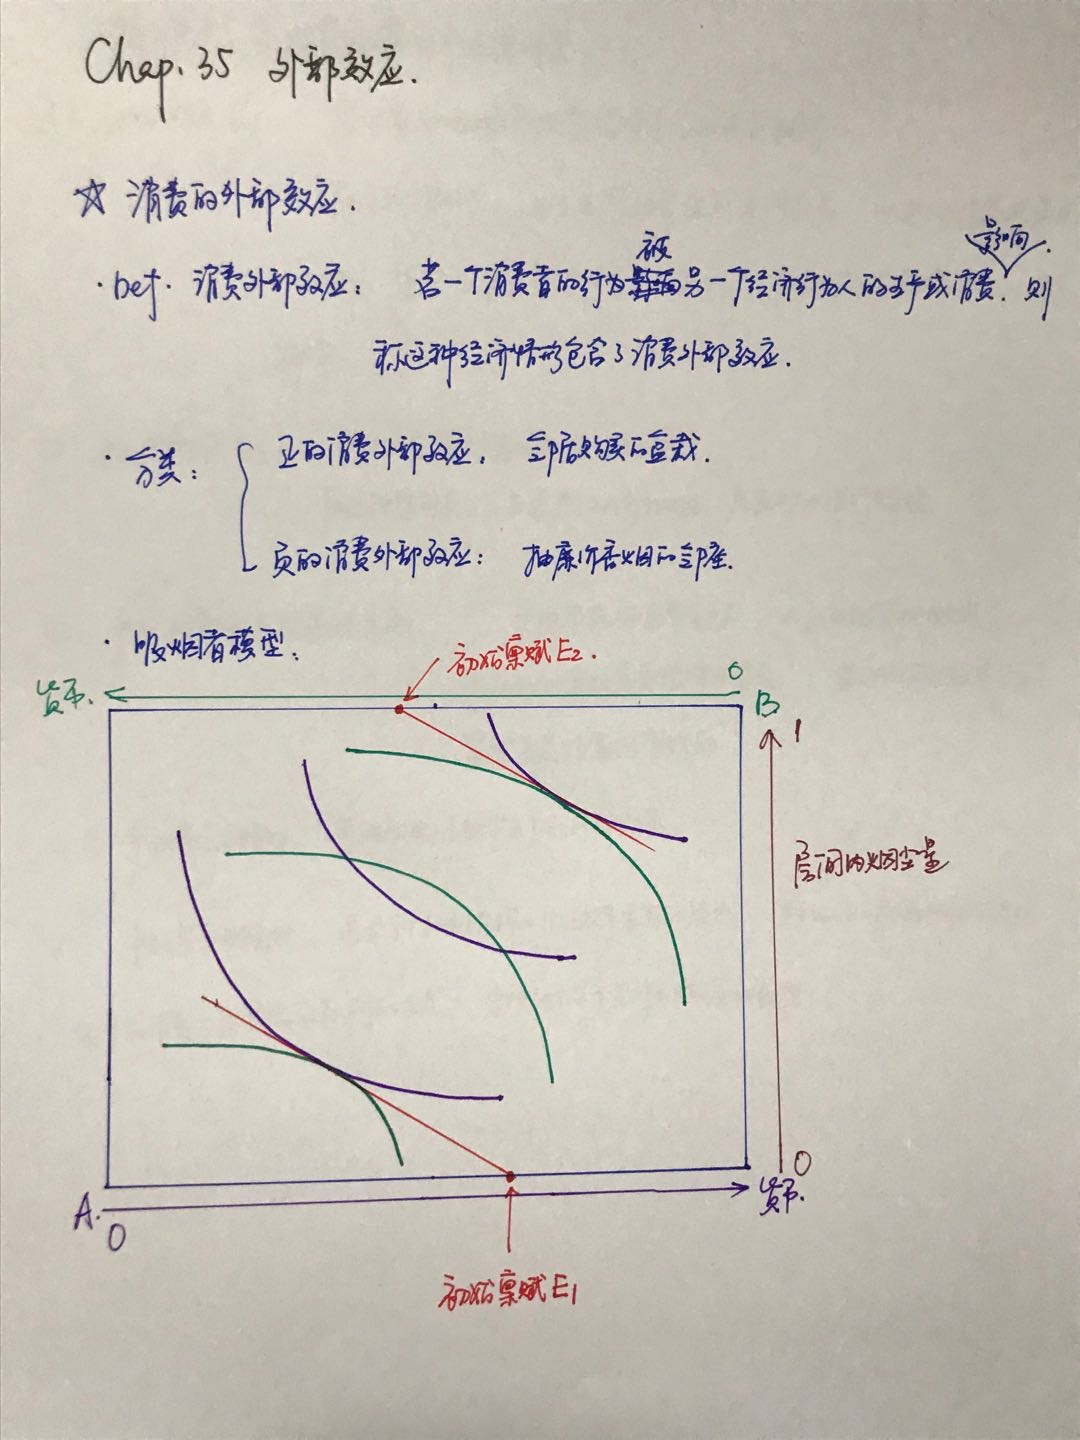 Chap. 35 外部效应.
☆ 消费的外部效应.
· Def. 消费外部效应: 若一个消费者的行为被另一个经济行为人的生产或消费影响. 则
称这种经济情形包含了消费外部效应.
· 分类:
正的消费外部效应: 邻居购买的盆栽.
负的消费外部效应: 抽廉价香烟的邻座.
· 吸烟者模型:
初始禀赋E2.
货币.
0
B
1
房间的烟尘量
0
货币.
A.
0
初始禀赋E1